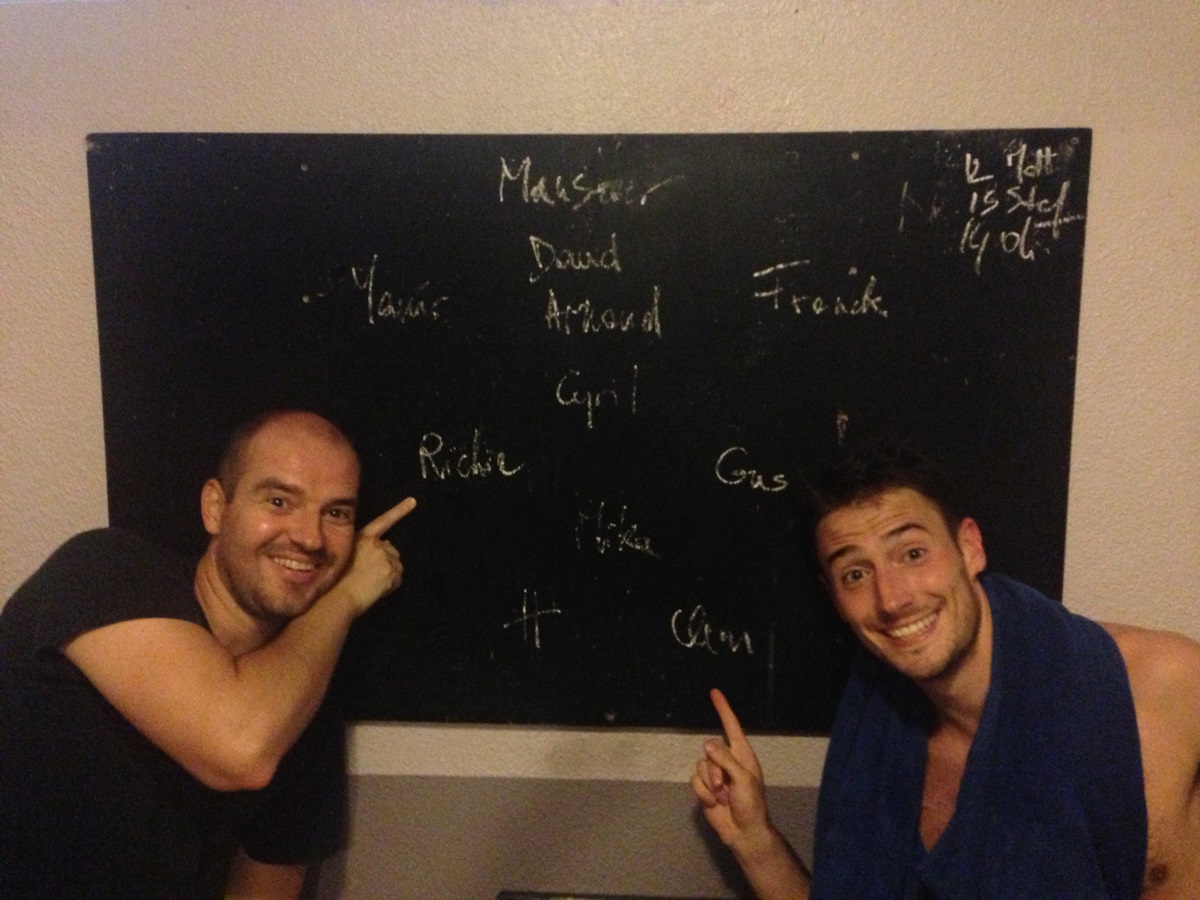 12 Matt
15 Stef
14 Oli
David
Yanis
Arnaud
Franck
Cyril
Richie
Gus
Mika
H
Clem